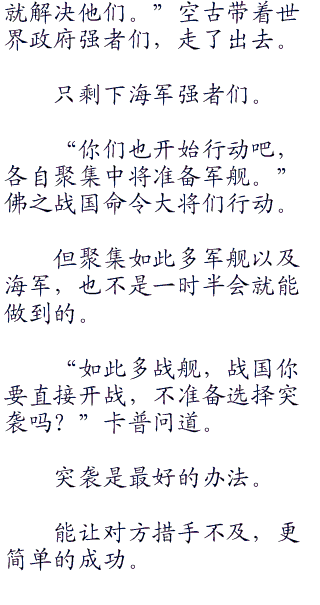 就解决他们。”空古带着世
界政府强者们，走了出去。
只剩下海军强者们。
“你们也开始行动吧，
各自聚集中将准备军舰。”
佛之战国命令大将们行动。
但聚集如此多军舰以及
海军，也不是一时半会就能
做到的。
“如此多战舰，战国你
要直接开战，不准备选择突
袭吗？”卡普问道。
突袭是最好的办法。
能让对方措手不及，更
简单的成功。